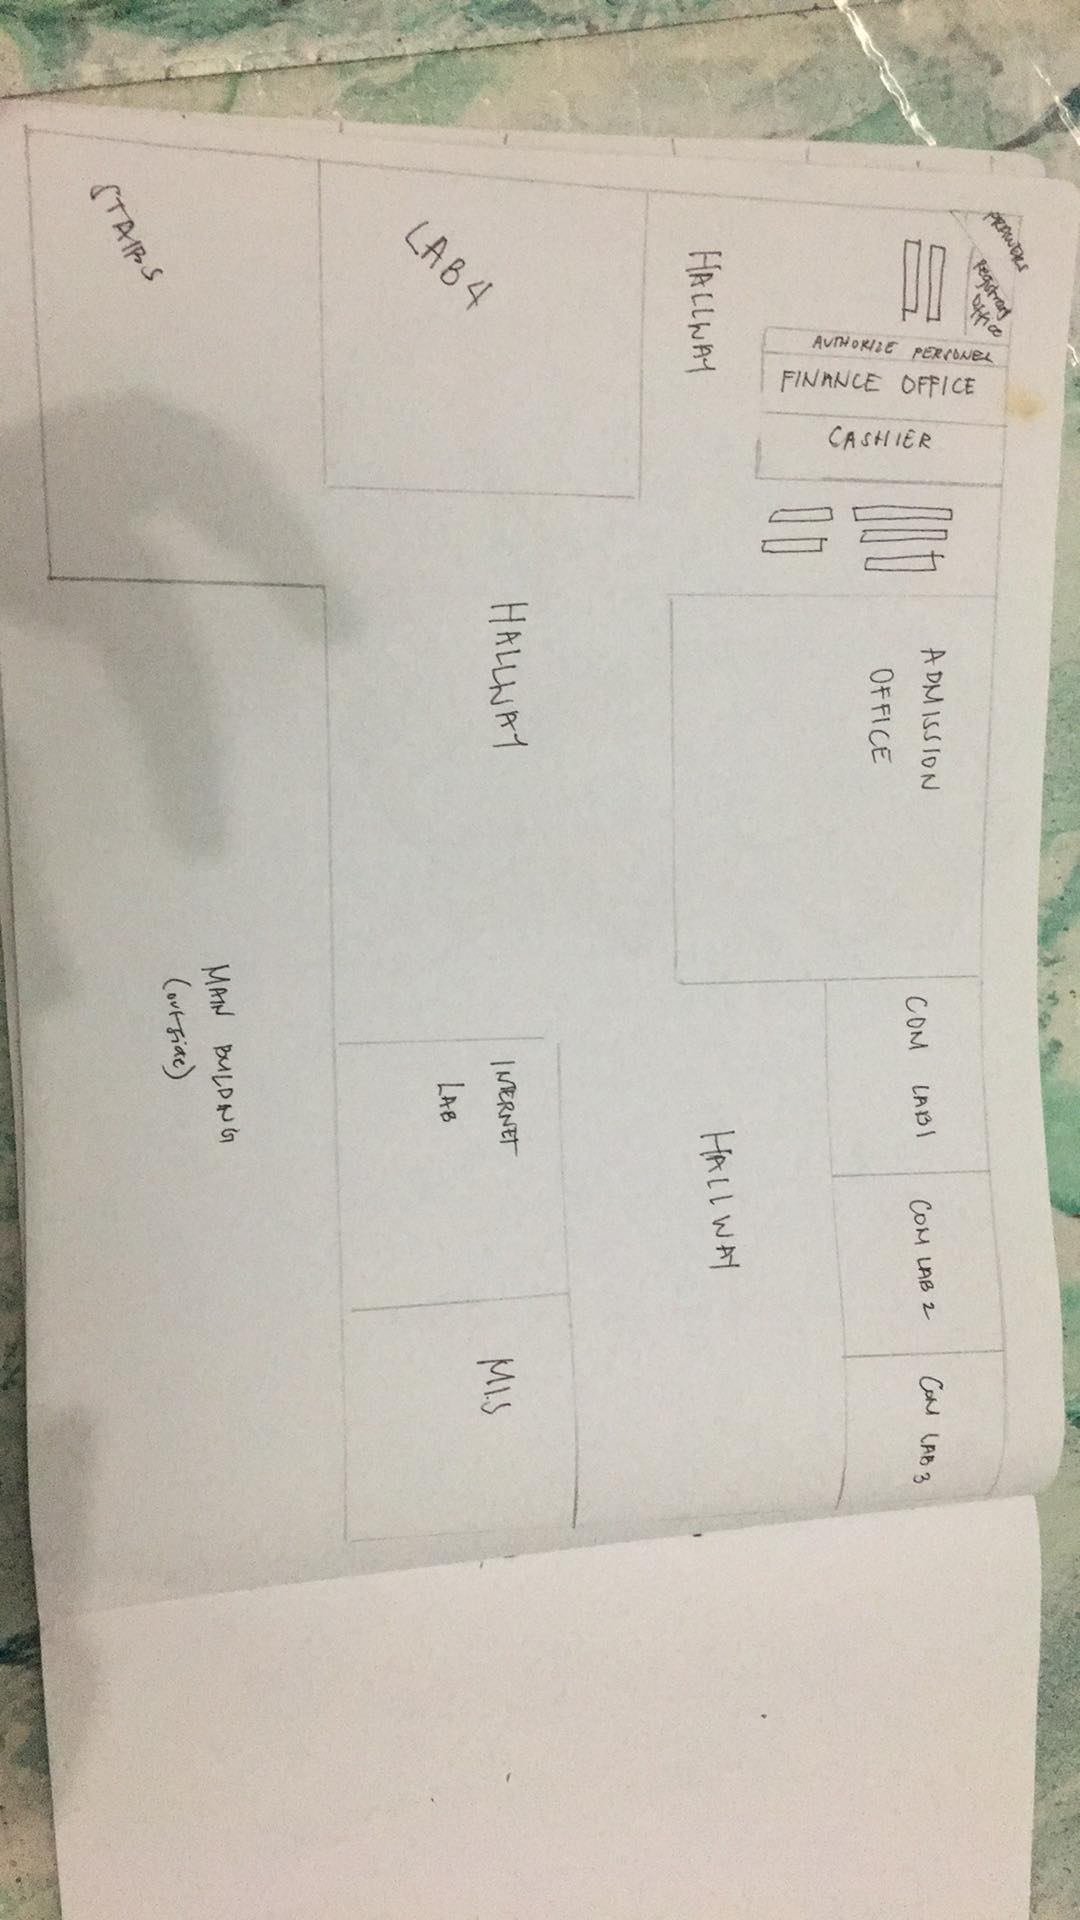 DRAWERS
Registrar
Office
AUTHORIZE PERSONEL
FINANCE OFFICE
CASHIER
ADMISSION
OFFICE
COM LAB 1
COM LAB 2
COM LAB 3
HALLWAY
HALLWAY
LAB 4
HALLWAY
INTERNET
LAB
M.I.S
STAIRS
MAIN BULDING
(outside)